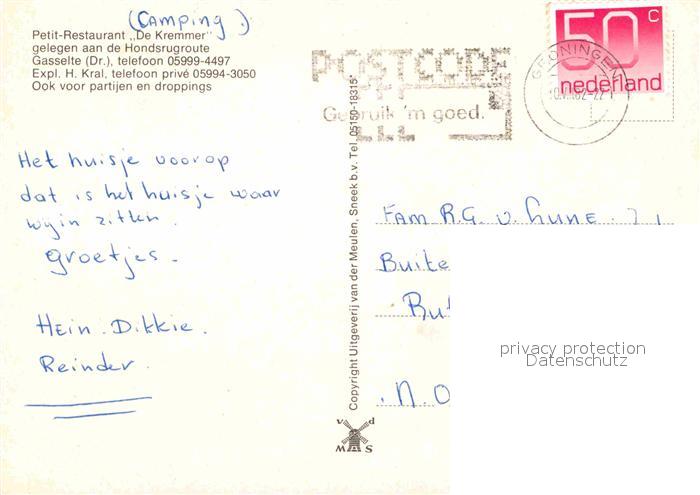 (Camping.)
Petit-Restaurant „De Kremmer"
gelegen aan de Hondsrugroute
Gasselte (Dr.), telefoon 05999-4497
Expl. H. Kral, telefoon privé 05994-3050
Ook voor partijen en droppings
POSTCODE
Gebruik 'm goed.
GRONINGEN
50 c
nederland
Het huisje voorop
dat is het huisje waar
wij in zitten.
groetjes.
Hein. Dikkie.
Reinder.
Copyright Uitgeverij van der Meulen, Sneek b.v. Tel. 05150-18315*
v d
M S
Fam R.G. v.
Buite
N.O
privacy protection
Datenschutz